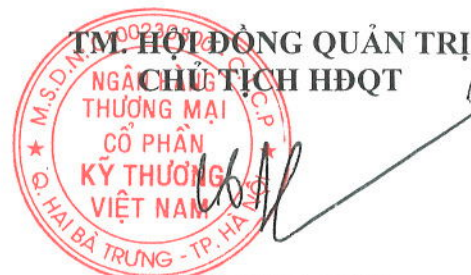 TM. HỘI ĐỒNG QUẢN TRỊ
CHỦ TỊCH HĐQT
NGÂN HÀNG
THƯƠNG MẠI
CỔ PHẦN
KỸ THƯƠNG
VIỆT NAM
Q. HAI BÀ TRƯNG - TP. HÀ NỘI